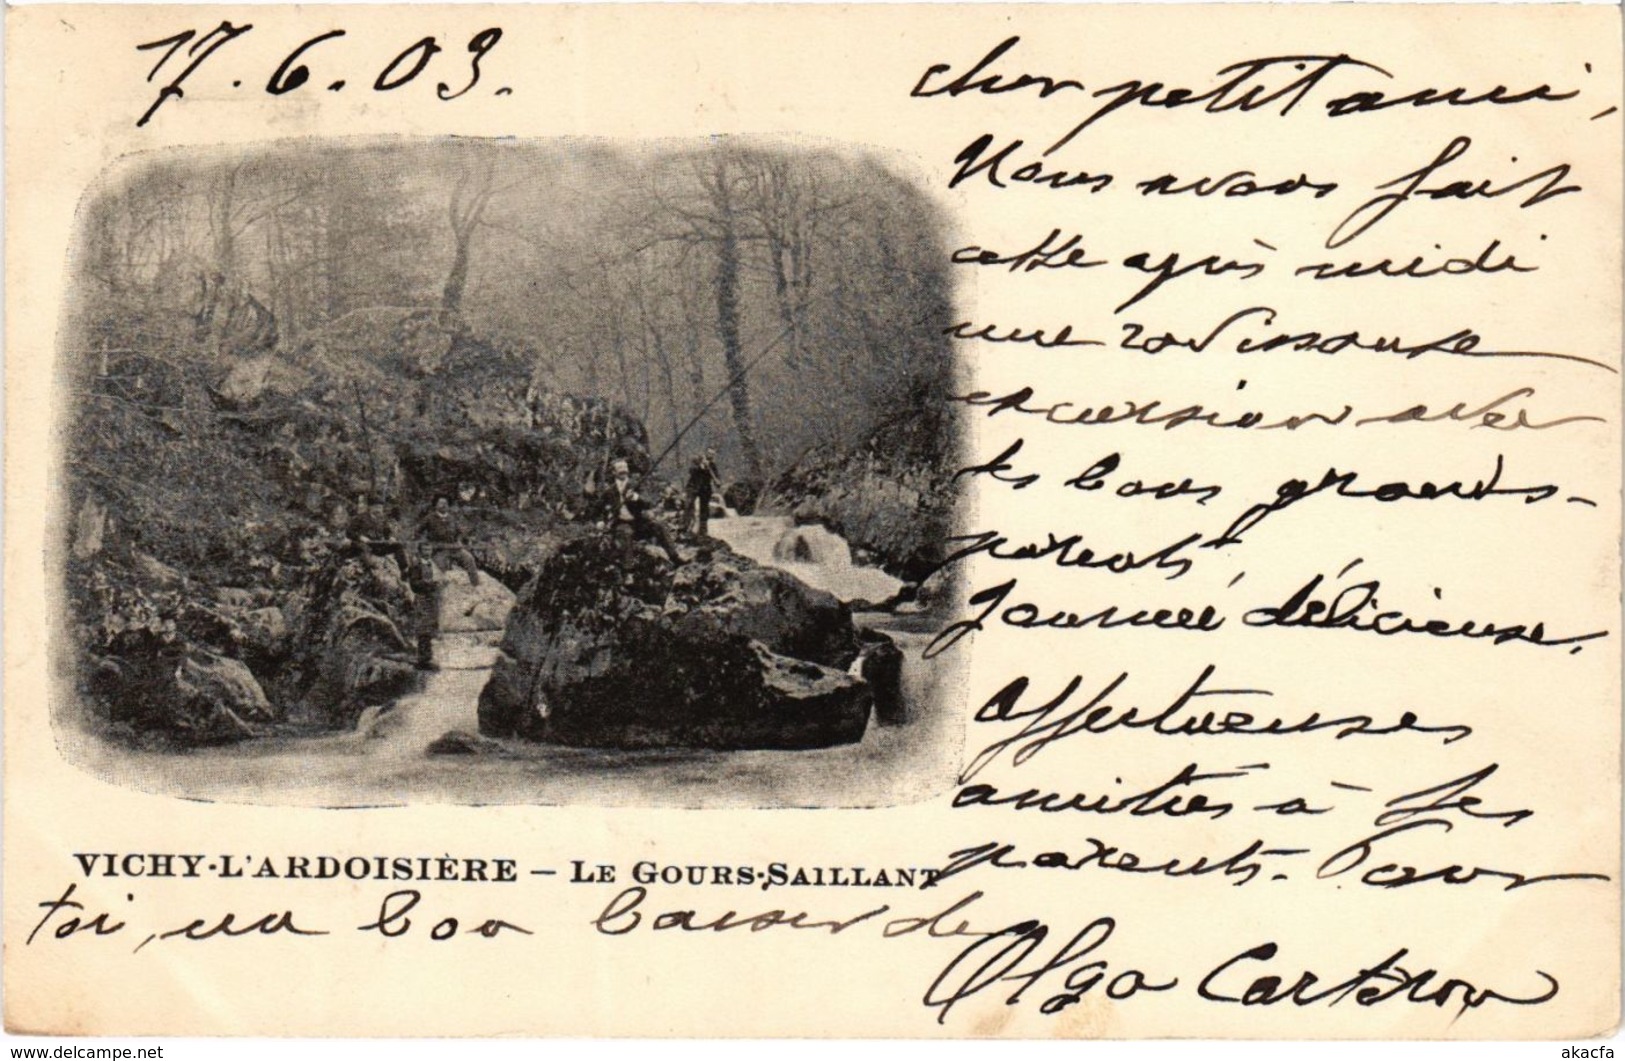 17.6.03.
cher petit ami,
Nous avons fait
cette après midi
une ravissante
excursion avec
tes bons grands-
parents,
Journée délicieuse,
Affectueuses
amitiés à tes
parents. Pour
VICHY-L'ARDOISIÈRE – LE GOURS-SAILLANT
toi, un bon baiser de
Olga
akacfa